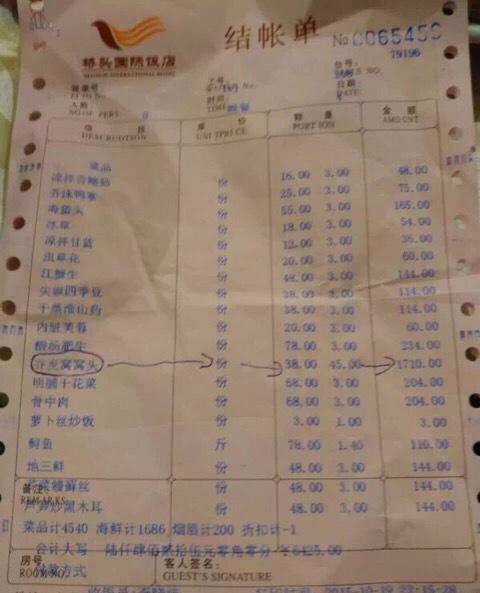 结帐单
No 0065459
79196
桥头国际饭店
工号
台号:
时间
TIME 晚餐
日期:
DATE
人数
NO OF PERS 0
项 目 单 价 数 量 金 额
DESCRIPTION UNIT PRICE PORTION AMOUNT
菜品
份 16.00 3.00 48.00
份 25.00 3.00 75.00
海蜇头 份 55.00 3.00 165.00
冰草 份 18.00 3.00 54.00
凉拌甘蓝 份 12.00 3.00 36.00
虫草花 份 20.00 3.00 60.00
江蟹生 份 48.00 3.00 144.00
尖椒四季豆 份 38.00 3.00 114.00
干煎淮山药 份 38.00 3.00 114.00
内脏芙蓉 份 20.00 3.00 60.00
份 78.00 3.00 234.00
窝窝头 份 38.00 45.00 1710.00
干花菜 份 68.00 3.00 204.00
骨中肉 份 68.00 3.00 204.00
萝卜丝炒饭 份 3.00 1.00 3.00
鲥鱼 斤 78.00 1.40 110.00
地三鲜 份 48.00 3.00 144.00
鳗鲞丝 份 48.00 3.00 144.00
备注:
REMARKS
芦笋炒黑木耳 份 48.00 3.00 144.00
菜品计4540 海鲜计1686 烟酒计200 折扣计-1
合计大写 陆仟肆佰贰拾伍元零角零分 ¥6425.00
房号
ROOM NO.
客人签名:
GUEST'S SIGNATURE
方式
2015-10-19 22:15:28